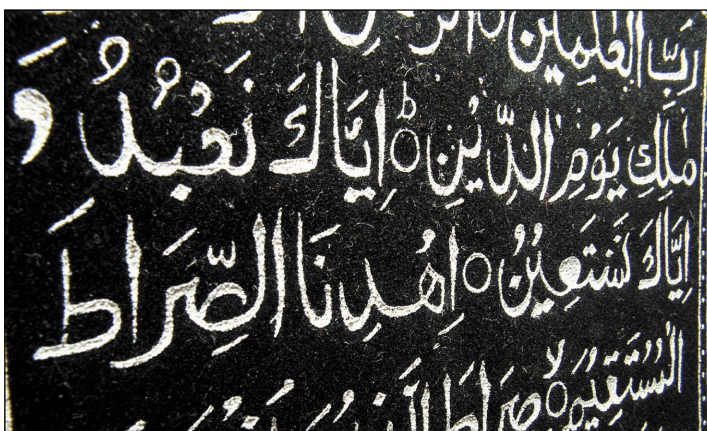 رَبِّ الْعٰلَمِيْنَ ○ الرَّحْمٰنِ
مٰلِكِ يَوْمِ الدِّيْنِ ○ؕ اِيَّاكَ نَعْبُدُ وَ
اِيَّاكَ نَسْتَعِيْنُ ○ اِهْدِنَا الصِّرَاطَ
الْمُسْتَقِيْمَ ○ۙ صِرَاطَ الَّذِيْنَ